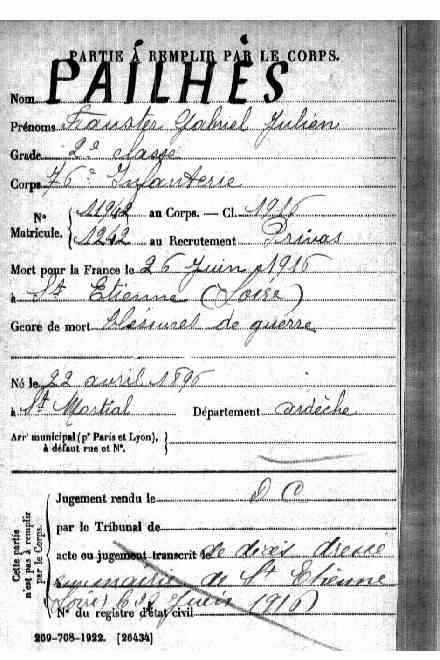 PARTIE À REMPLIR PAR LE CORPS.
Nom PAILHÈS
Prénoms Gabriel Julien
Grade 2e classe
Corps 76e Infanterie
No Matricule. 11942 au Corps. — Cl. 1916
1242 au Recrutement Privas
Mort pour la France le 26 Juin 1916
à St Etienne (Loire)
Genre de mort blessures de guerre
Né le 22 avril 1896
à St Martial Département ardèche
Arrt municipal (pr Paris et Lyon), à défaut rue et No.
Cette partie n'est pas à remplir par le Corps.
Jugement rendu le D C
par le Tribunal de
acte ou jugement transcrit le de décès dressé
mairie de St Etienne
Loire Juin 1916)
No du registre d'état civil
269-708-1922. [26434]